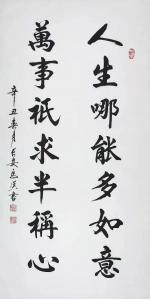 人生哪能多如意
萬事祇求半稱心
辛丑